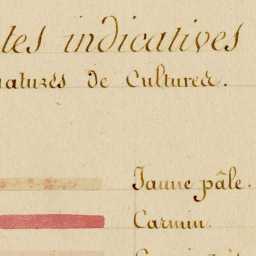 tes indicatives
natures de Cultures.
Jaune pâle.
Carmin.